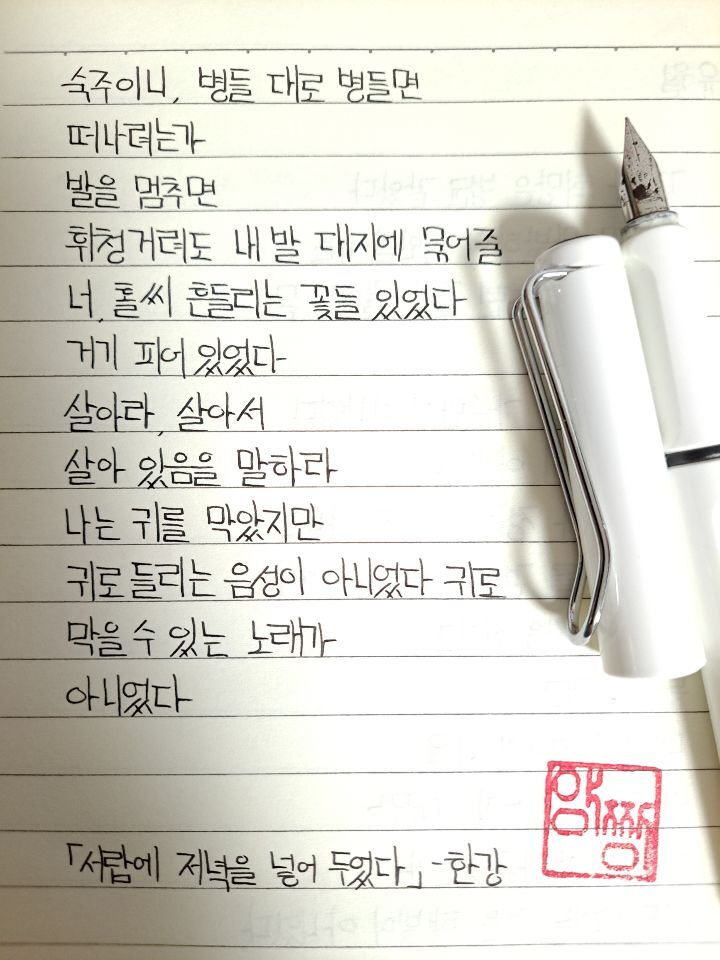 숙주이니, 병들 대로 병들면
떠나려는가
발을 멈추면
휘청거려도 내 발 대지에 묶어줄
너, 홀씨 흔들리는 꽃들 있었다
거기 피어 있었다
살아라, 살아서
살아 있음을 말하라
나는 귀를 막았지만
귀로 들리는 음성이 아니었다 귀로
막을 수 있는 노래가
아니었다
「서랍에 저녁을 넣어 두었다」 -한강